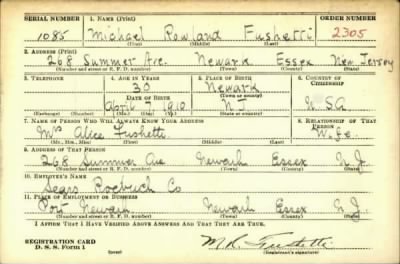 SERIAL NUMBER 1. NAME (Print) ORDER NUMBER
1085 Michael Rowland Fushetti 2305
(First) (Middle) (Last)
2. ADDRESS (Print)
268 Summer Ave. Newark Essex New Jersey
(Number and street or R. F. D. number) (Town) (County) (State)
3. TELEPHONE 4. AGE IN YEARS 5. PLACE OF BIRTH 6. COUNTRY OF CITIZENSHIP
30 Newark
(Town or county)
DATE OF BIRTH
April 7 1910 N.J. U.S.A.
(Exchange) (Number) (Mo.) (Day) (Yr.) (State or country)
7. NAME OF PERSON WHO WILL ALWAYS KNOW YOUR ADDRESS 8. RELATIONSHIP OF THAT PERSON
Mrs Alice Fushetti Wife
(Mr., Mrs., Miss) (First) (Middle) (Last)
9. ADDRESS OF THAT PERSON
268 Summer Ave Newark Essex N.J.
(Number and street or R. F. D. number) (Town) (County) (State)
10. EMPLOYER'S NAME
Sears Roebuck Co
11. PLACE OF EMPLOYMENT OR BUSINESS
Port Newark Newark Essex N.J.
(Number and street or R. F. D. number) (Town) (County) (State)
I AFFIRM THAT I HAVE VERIFIED ABOVE ANSWERS AND THAT THEY ARE TRUE.
REGISTRATION CARD
D. S. S. Form 1 M. R. Fushetti
(Registrant's signature)